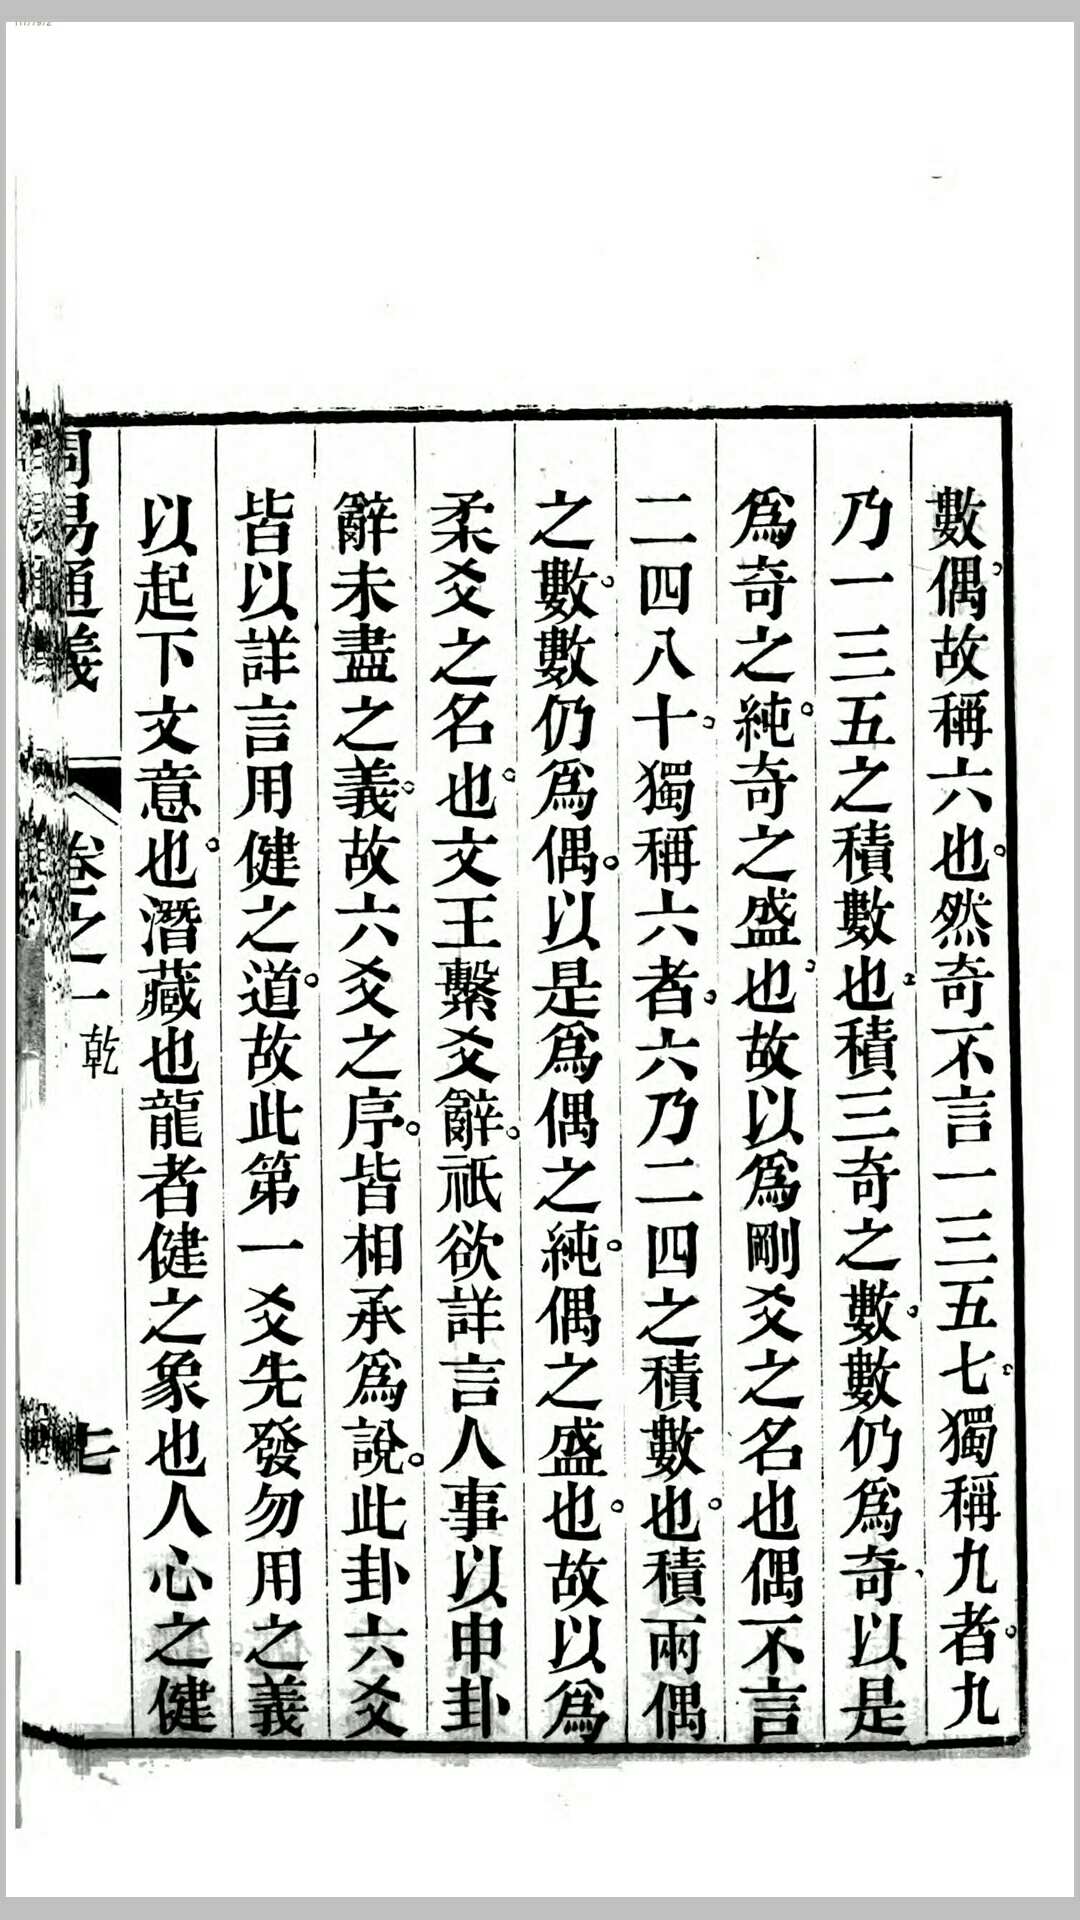 數偶。故稱六也。然奇不言一三五七。獨稱九者。九
乃一三五之積數也。積三奇之數。數仍爲奇。以是
爲奇之純。奇之盛也。故以爲剛爻之名也偶不言
二四八十。獨稱六者。六乃二四之積數也。積兩偶
之數。數仍爲偶。以是爲偶之純。偶之盛也。故以爲
柔爻之名也。文王繫爻辭。祇欲詳言人事以申卦
辭未盡之義。故六爻之序。皆相承爲說。此卦六爻
皆以詳言用健之道。故此第一爻先發勿用之義
以起下文意也。潛藏也龍者健之象也人心之健
周易通義
卷之一
乾
七